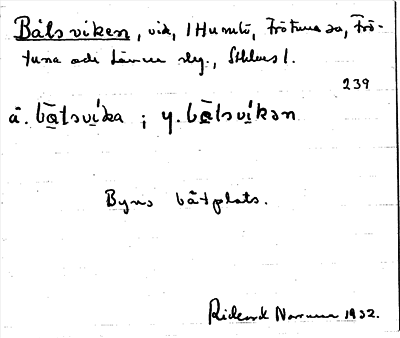 Båtsviken, vik, i Humsö, Frötuna sn, Frö-
tuna och Länna sly., Sthlms l.
239
ä. bå̄tsvíka ; y. bå̀tsvíkən
Byns båtplats.
Rickard Norman 1932.